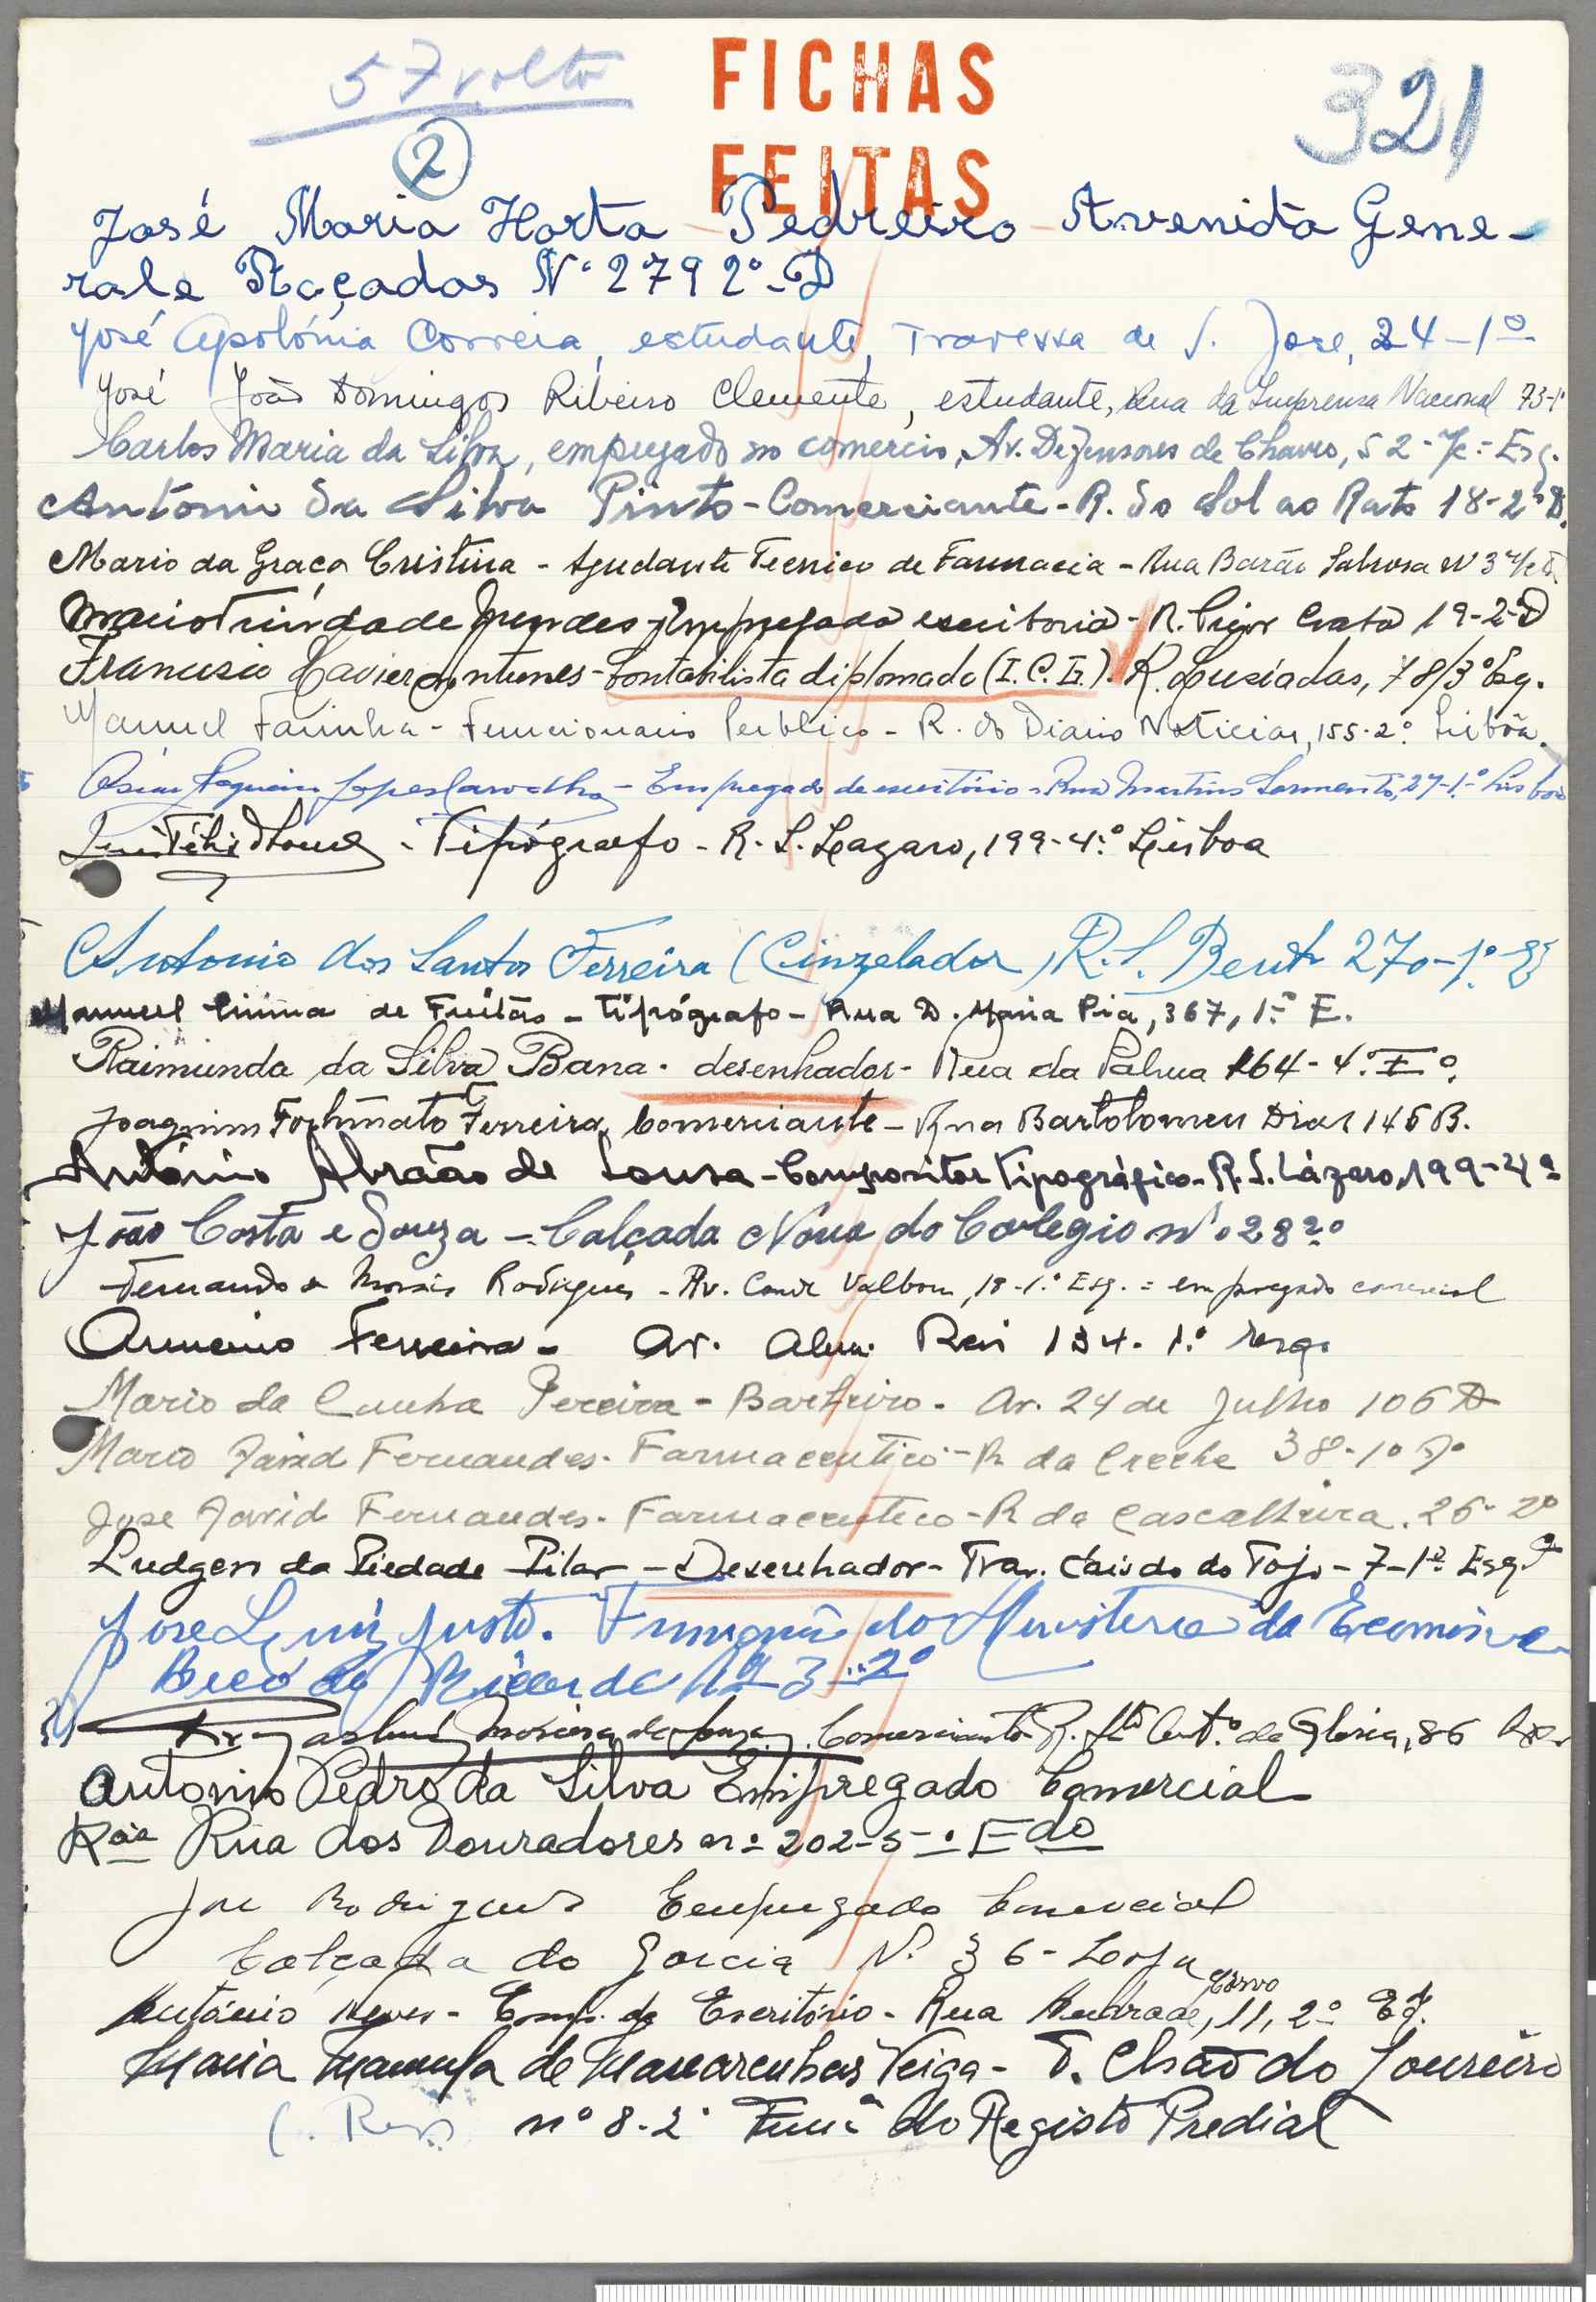 57 volto
FICHAS
FEITAS
321
2
José Maria Horta - Pedreiro - Avenida Gene-
rale Raçadas Nº 279 2º-D
José Apolónia Correia, estudante, Travessa de S. José, 24-1º
José João Domingos Ribeiro Clemente, estudante, Rua da Imprensa Nacional 73-1º
Carlos Maria da Silva, empregado no comercio, Av. Defensores de Chaves, 52-7c-Esq.
António da Silva Pinto - Comerciante - R. do Sol ao Rato 18-2º D.
Mario da Graça Cristina - Ajudante Tecnico de Farmacia - Rua Barão Sabrosa Nº 3
Mario Trindade Mendes - Empregado escritorio - R. Prior Crato 19-2-D
Francisco Xavier Antunes - Contabilista diplomado (I.C.L.). R. Lusíadas, 78/3º Esq.
Manuel Farinha - Funcionario Publico - R. do Diario Noticias, 155-2º. Lisbôa.
Lopes Carvalho - Empregado de escritório - Rua Martins Sarmento, 27-1º Lisboa
- Tipógrafo - R. S. Lazaro, 199-4º. Lisboa
Antonio dos Santos Ferreira (Cinzelador) R. S. Bento 270-1º-E
Manuel de Freitas - Tipógrafo - Rua D. Maria Pia, 367, 1º E.
Raimundo da Silva Bana - desenhador - Rua da Palma 164-4º. Eº.
Joaquim Fortunato Ferreira, Comerciante - Rua Bartolomeu Dias 145B.
António Abraão de Sousa - Compositor Tipográfico - R. S. Lázaro, 199-4º
João Costa e Souza - Calçada Nova do Colegio nº 28 2º
Fernando de Morais Rodrigues - Av. Conde Valbom, 18-1.º Esq. = empregado comercial
Armenio Ferreira - Av. Alm. Reis 134. 1.º esq.
Mario da Cunha Pereira - Barbeiro - Av. 24 de Julho 106 D
Mario David Fernandes - Farmaceutico - R da Creche 38-1º Dº
Jose David Fernandes - Farmaceutico - R da Cascalheira. 26-2º
Ludgero da Piedade Pilar - Desenhador - Trav. Cais do do Tojo - 7-1º Esq.
Jose Luiz Justo. do Ministerio da Economia
Beco da Ricarda Nº 3-2º
Moreira de Souza. Comerciante R. Stº Antº. da Glória, 86
Antonio Pedro da Silva Empregado Comercial
Rua dos Douradores nº 202-5-º Edo
José Rodrigues Empregado Comercial
Calçada do Garcia Nº. 36-Loja
António Neves - Emp. de Escritório - Rua Andrade, 11, 2º
Maria Manuela de Mascarenhas Veiga - T. Chão do Loureiro
nº 8-2º Funcª do Registo Predial